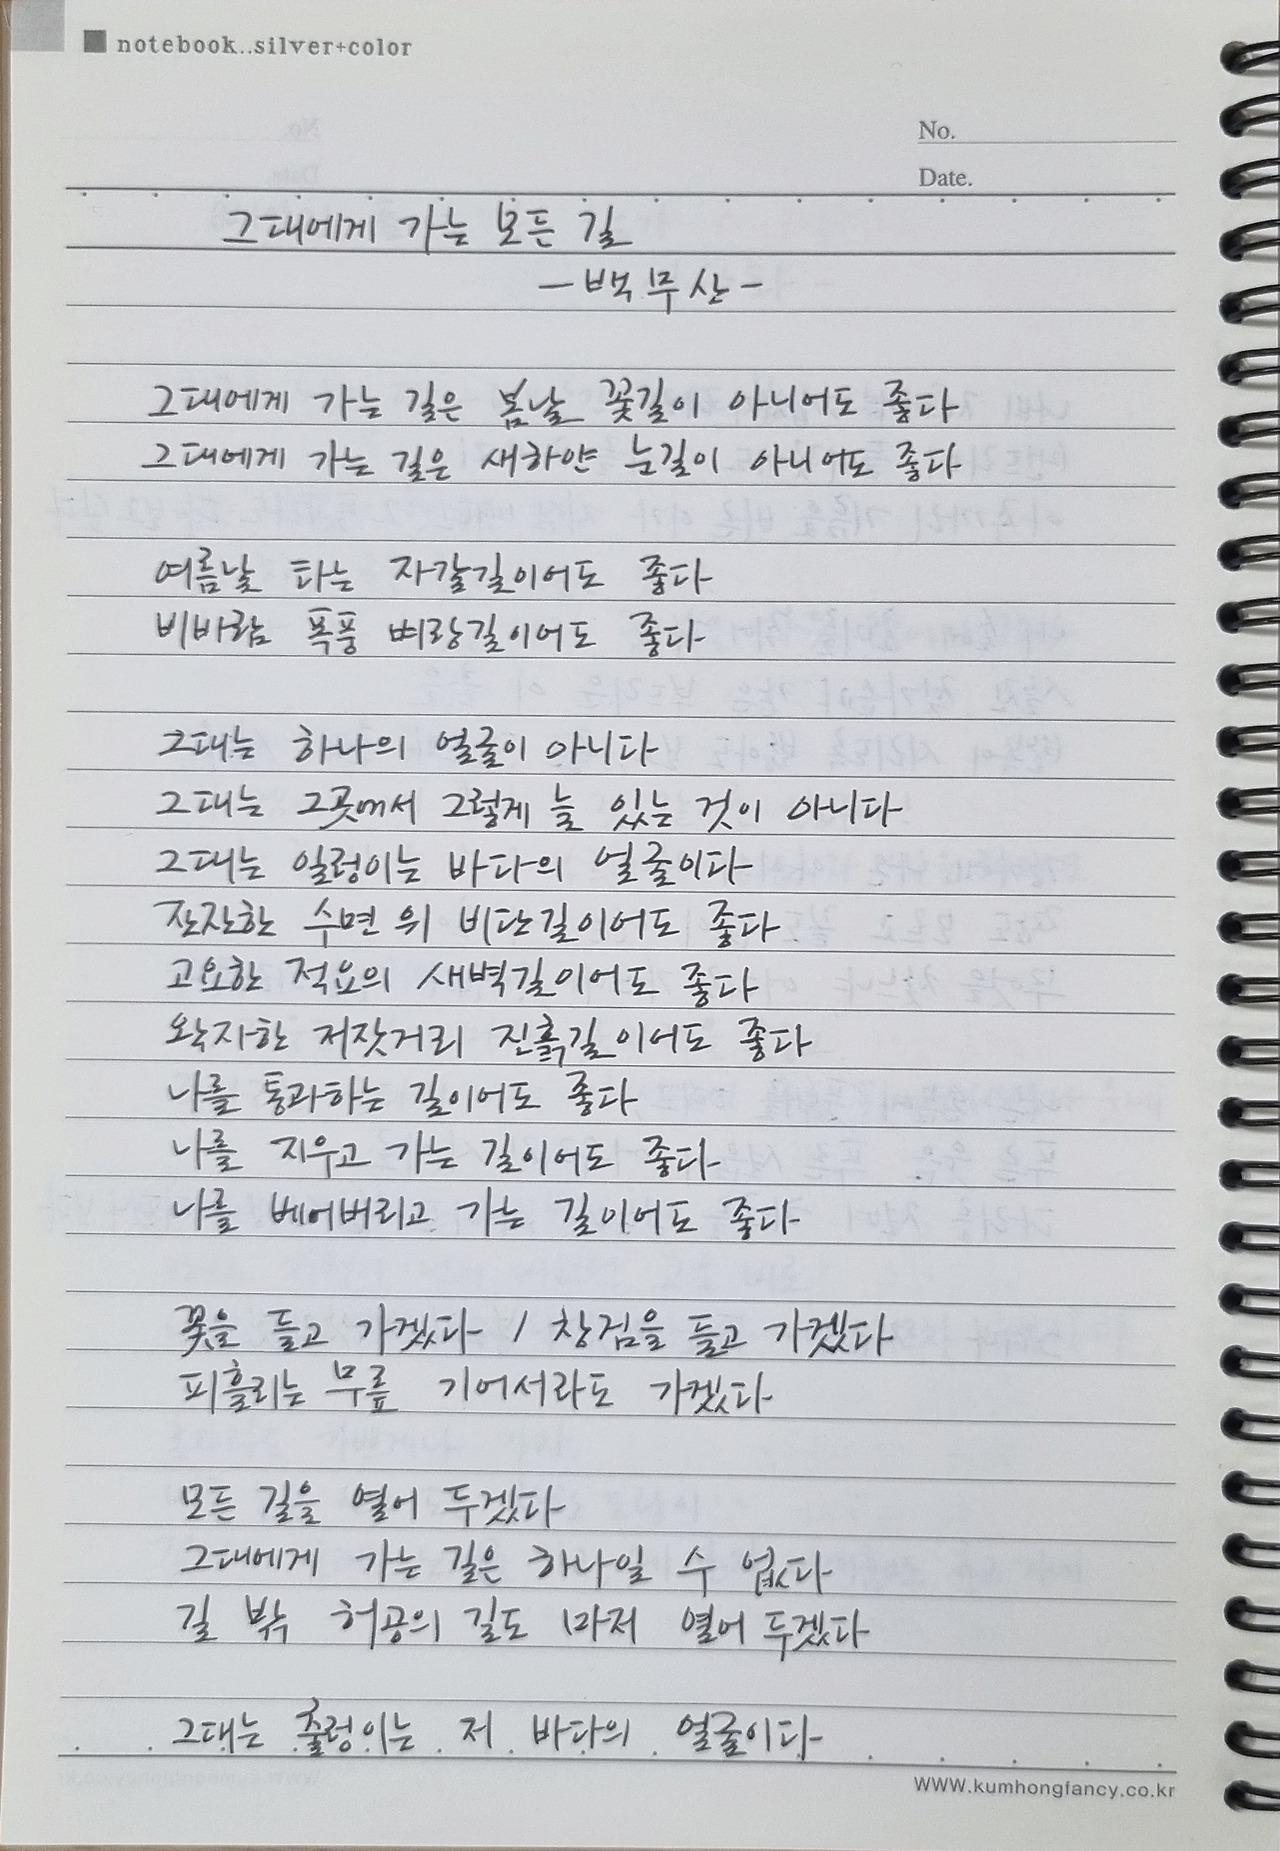 notebook..silver+color
No.
Date.
그대에게 가는 모든 길
- 백무산 -
그대에게 가는 길은 봄날 꽃길이 아니어도 좋다
그대에게 가는 길은 새하얀 눈길이 아니어도 좋다
여름날 타는 자갈길이어도 좋다
비바람 폭풍 벼랑길이어도 좋다
그대는 하나의 얼굴이 아니다
그대는 그곳에서 그렇게 늘 있는 것이 아니다
그대는 일렁이는 바다의 얼굴이다
잔잔한 수면 위 비단길이어도 좋다
고요한 적요의 새벽길이어도 좋다
왁자한 저잣거리 진흙길이어도 좋다
나를 통과하는 길이어도 좋다
나를 지우고 가는 길이어도 좋다
나를 베어버리고 가는 길이어도 좋다
꽃을 들고 가겠다 / 창검을 들고 가겠다
피흘리는 무릎 기어서라도 가겠다
모든 길을 열어 두겠다
그대에게 가는 길은 하나일 수 없다
길 밖 허공의 길도 마저 열어 두겠다
그대는 출렁이는 저 바다의 얼굴이다
www.kumhongfancy.co.kr